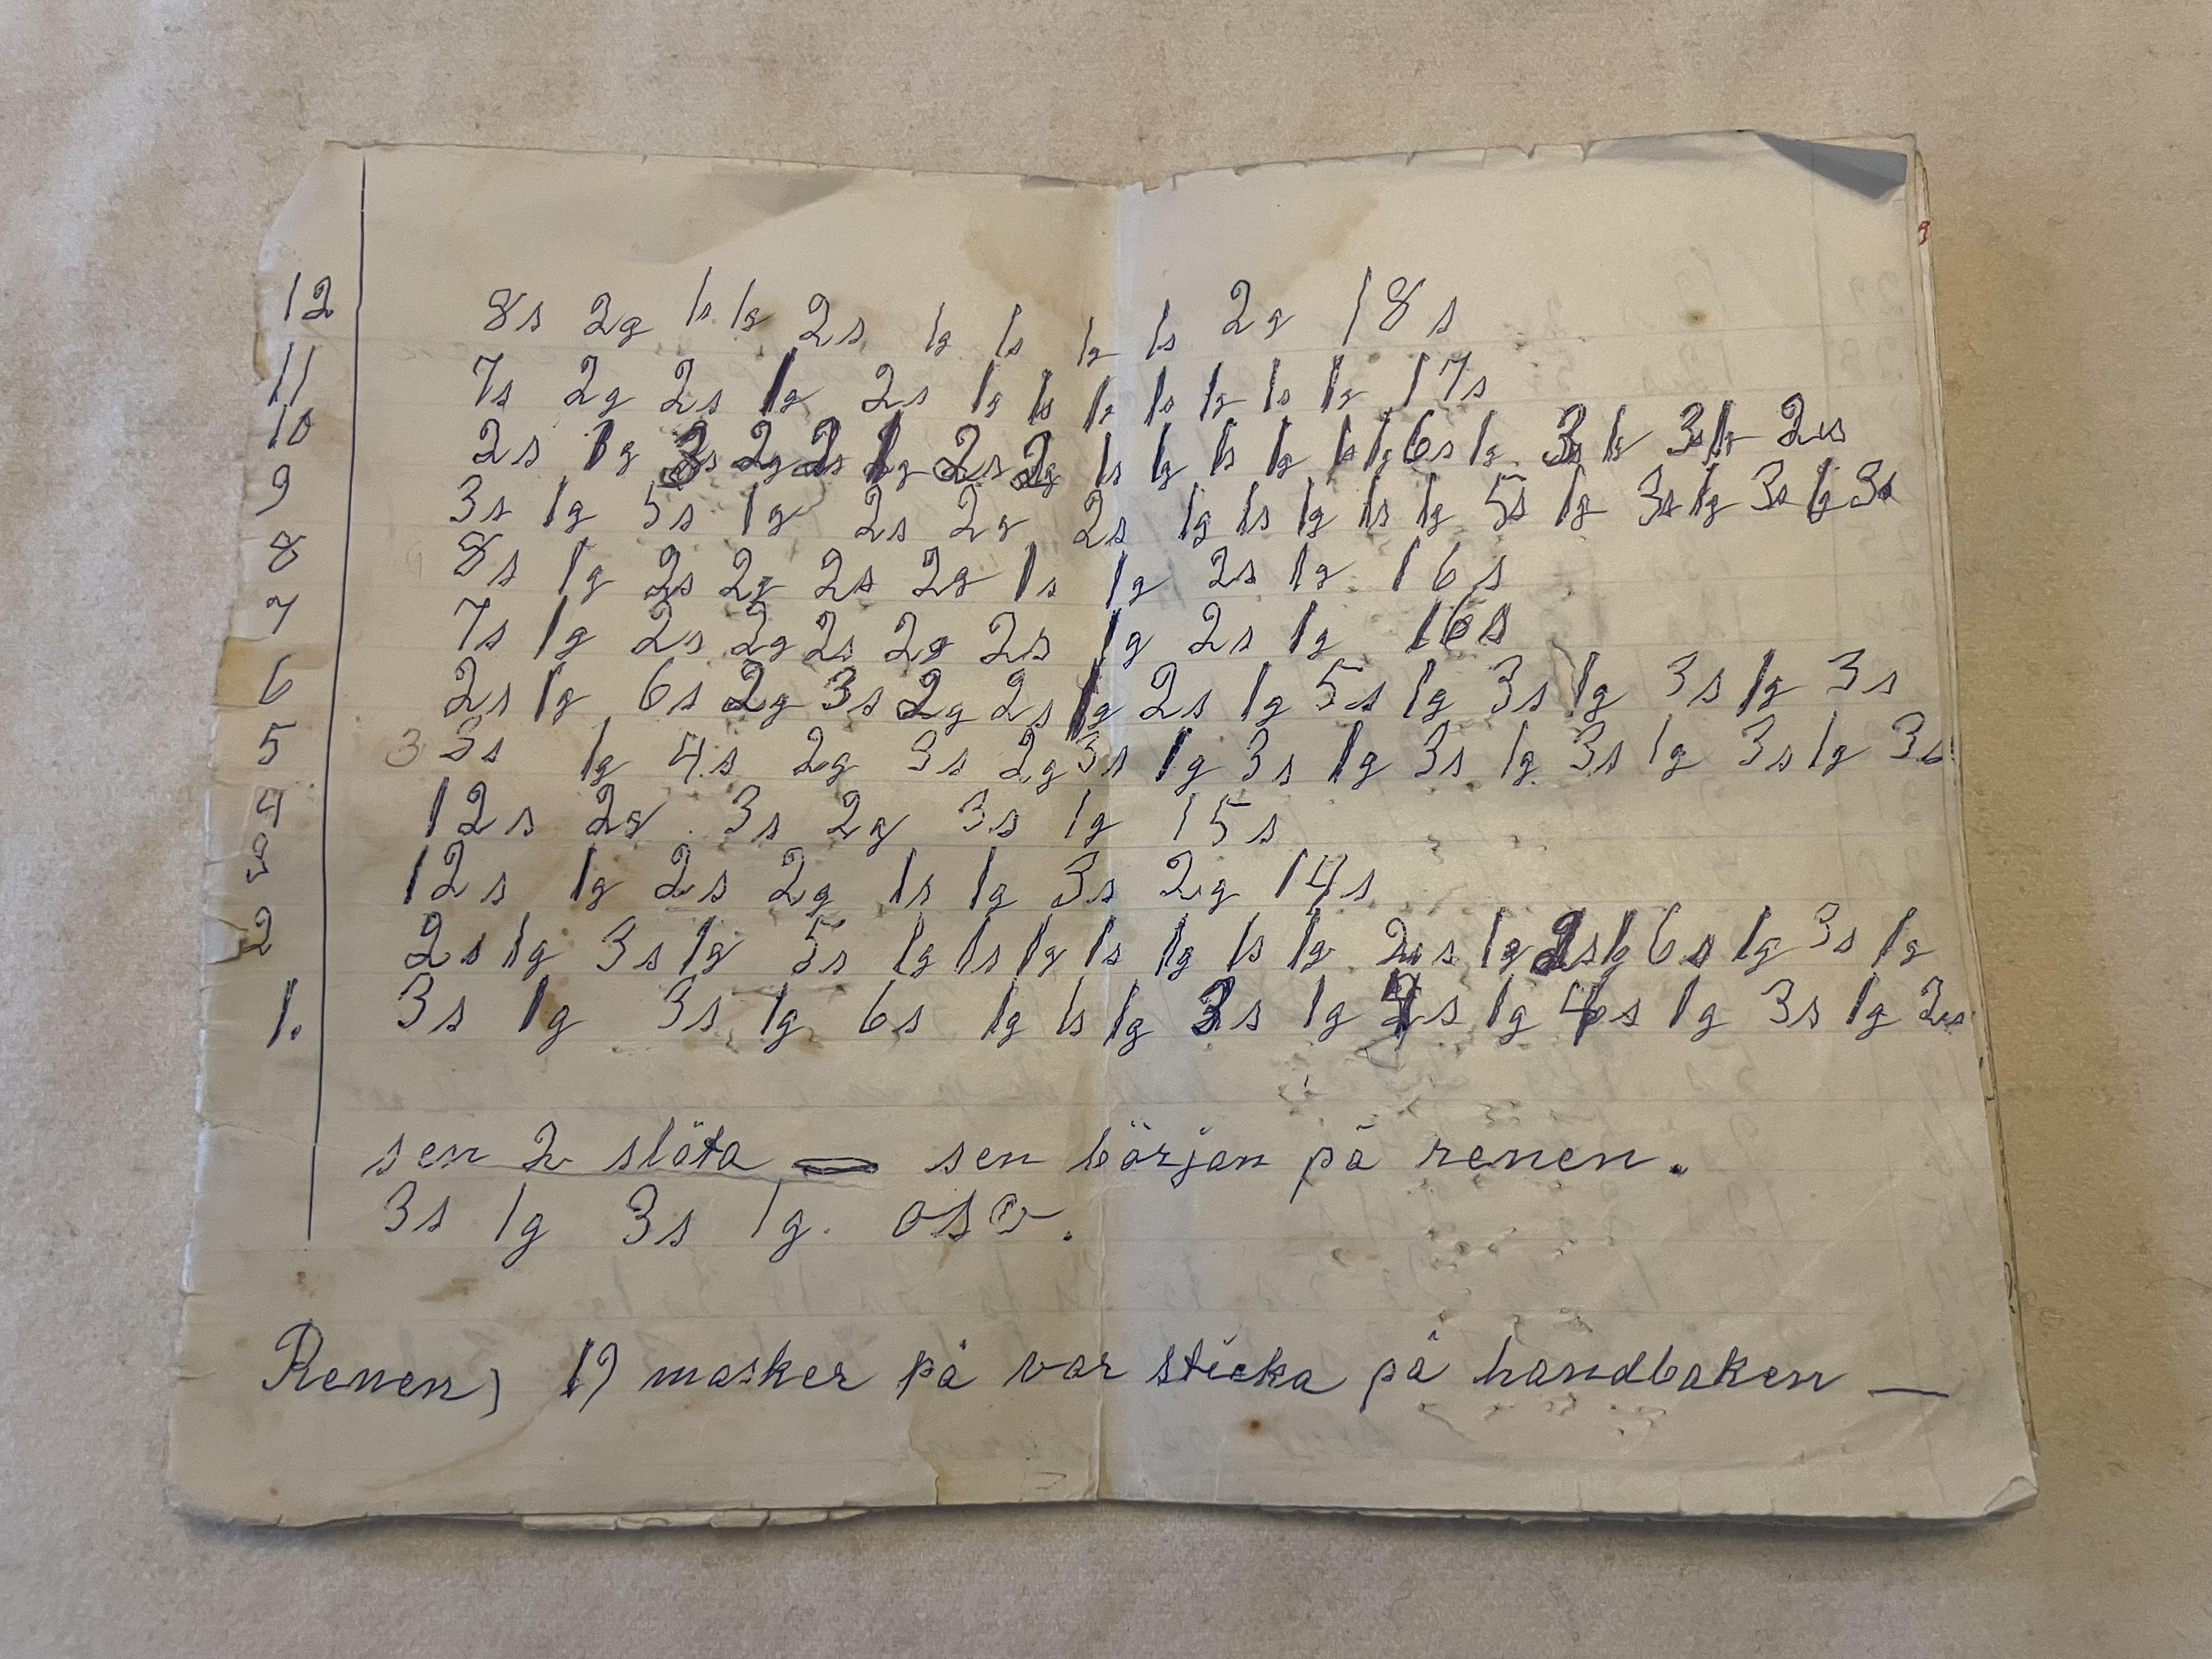 12 8s 2g 1s 1g 2s 1g 1s 1g 1s 2g 18s
11 7s 2g 2s 1g 2s 1g 1s 1g 1s 1g 1s 1g 17s
10 2s 1g 2g 2s 2g 1s 1g 1s 1g 1s 1g 6s 1g 3s 1g 3s 1g 2s
9 3s 1g 5s 1g 2s 2g 2s 1g 1s 1g 1s 1g 5s 1g 3s 1g 3s 1g 3s
8 8s 1g 2s 2g 2s 2g 1s 1g 2s 1g 16s
7 7s 1g 2s 2g 2s 2g 2s 1g 2s 1g 16s
6 2s 1g 6s 2g 3s 2g 2s 1g 2s 1g 5s 1g 3s 1g 3s 1g 3s
5 3 3s 1g 4s 2g 3s 2g 3s 1g 3s 1g 3s 1g 3s 1g 3s 1g 3s
4 12s 2g 3s 2g 3s 1g 15s
3 12s 1g 2s 2g 1s 1g 3s 2g 14s
2 2s 1g 3s 1g 5s 1g 1s 1g 1s 1g 1s 1g 2s 1g 1g 6s 1g 3s 1g
1. 3s 1g 3s 1g 6s 1g 1s 1g 3s 1g 1g 1g 3s 1g 2s
sen 2 släta sen början på renen.
3s 1g 3s 1g. osv.
Renen, 17 masker på var sticka på handbaken —